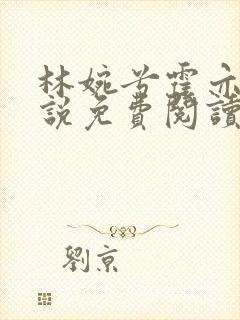 林婉兮霍亦
說免費閱讀
劉京